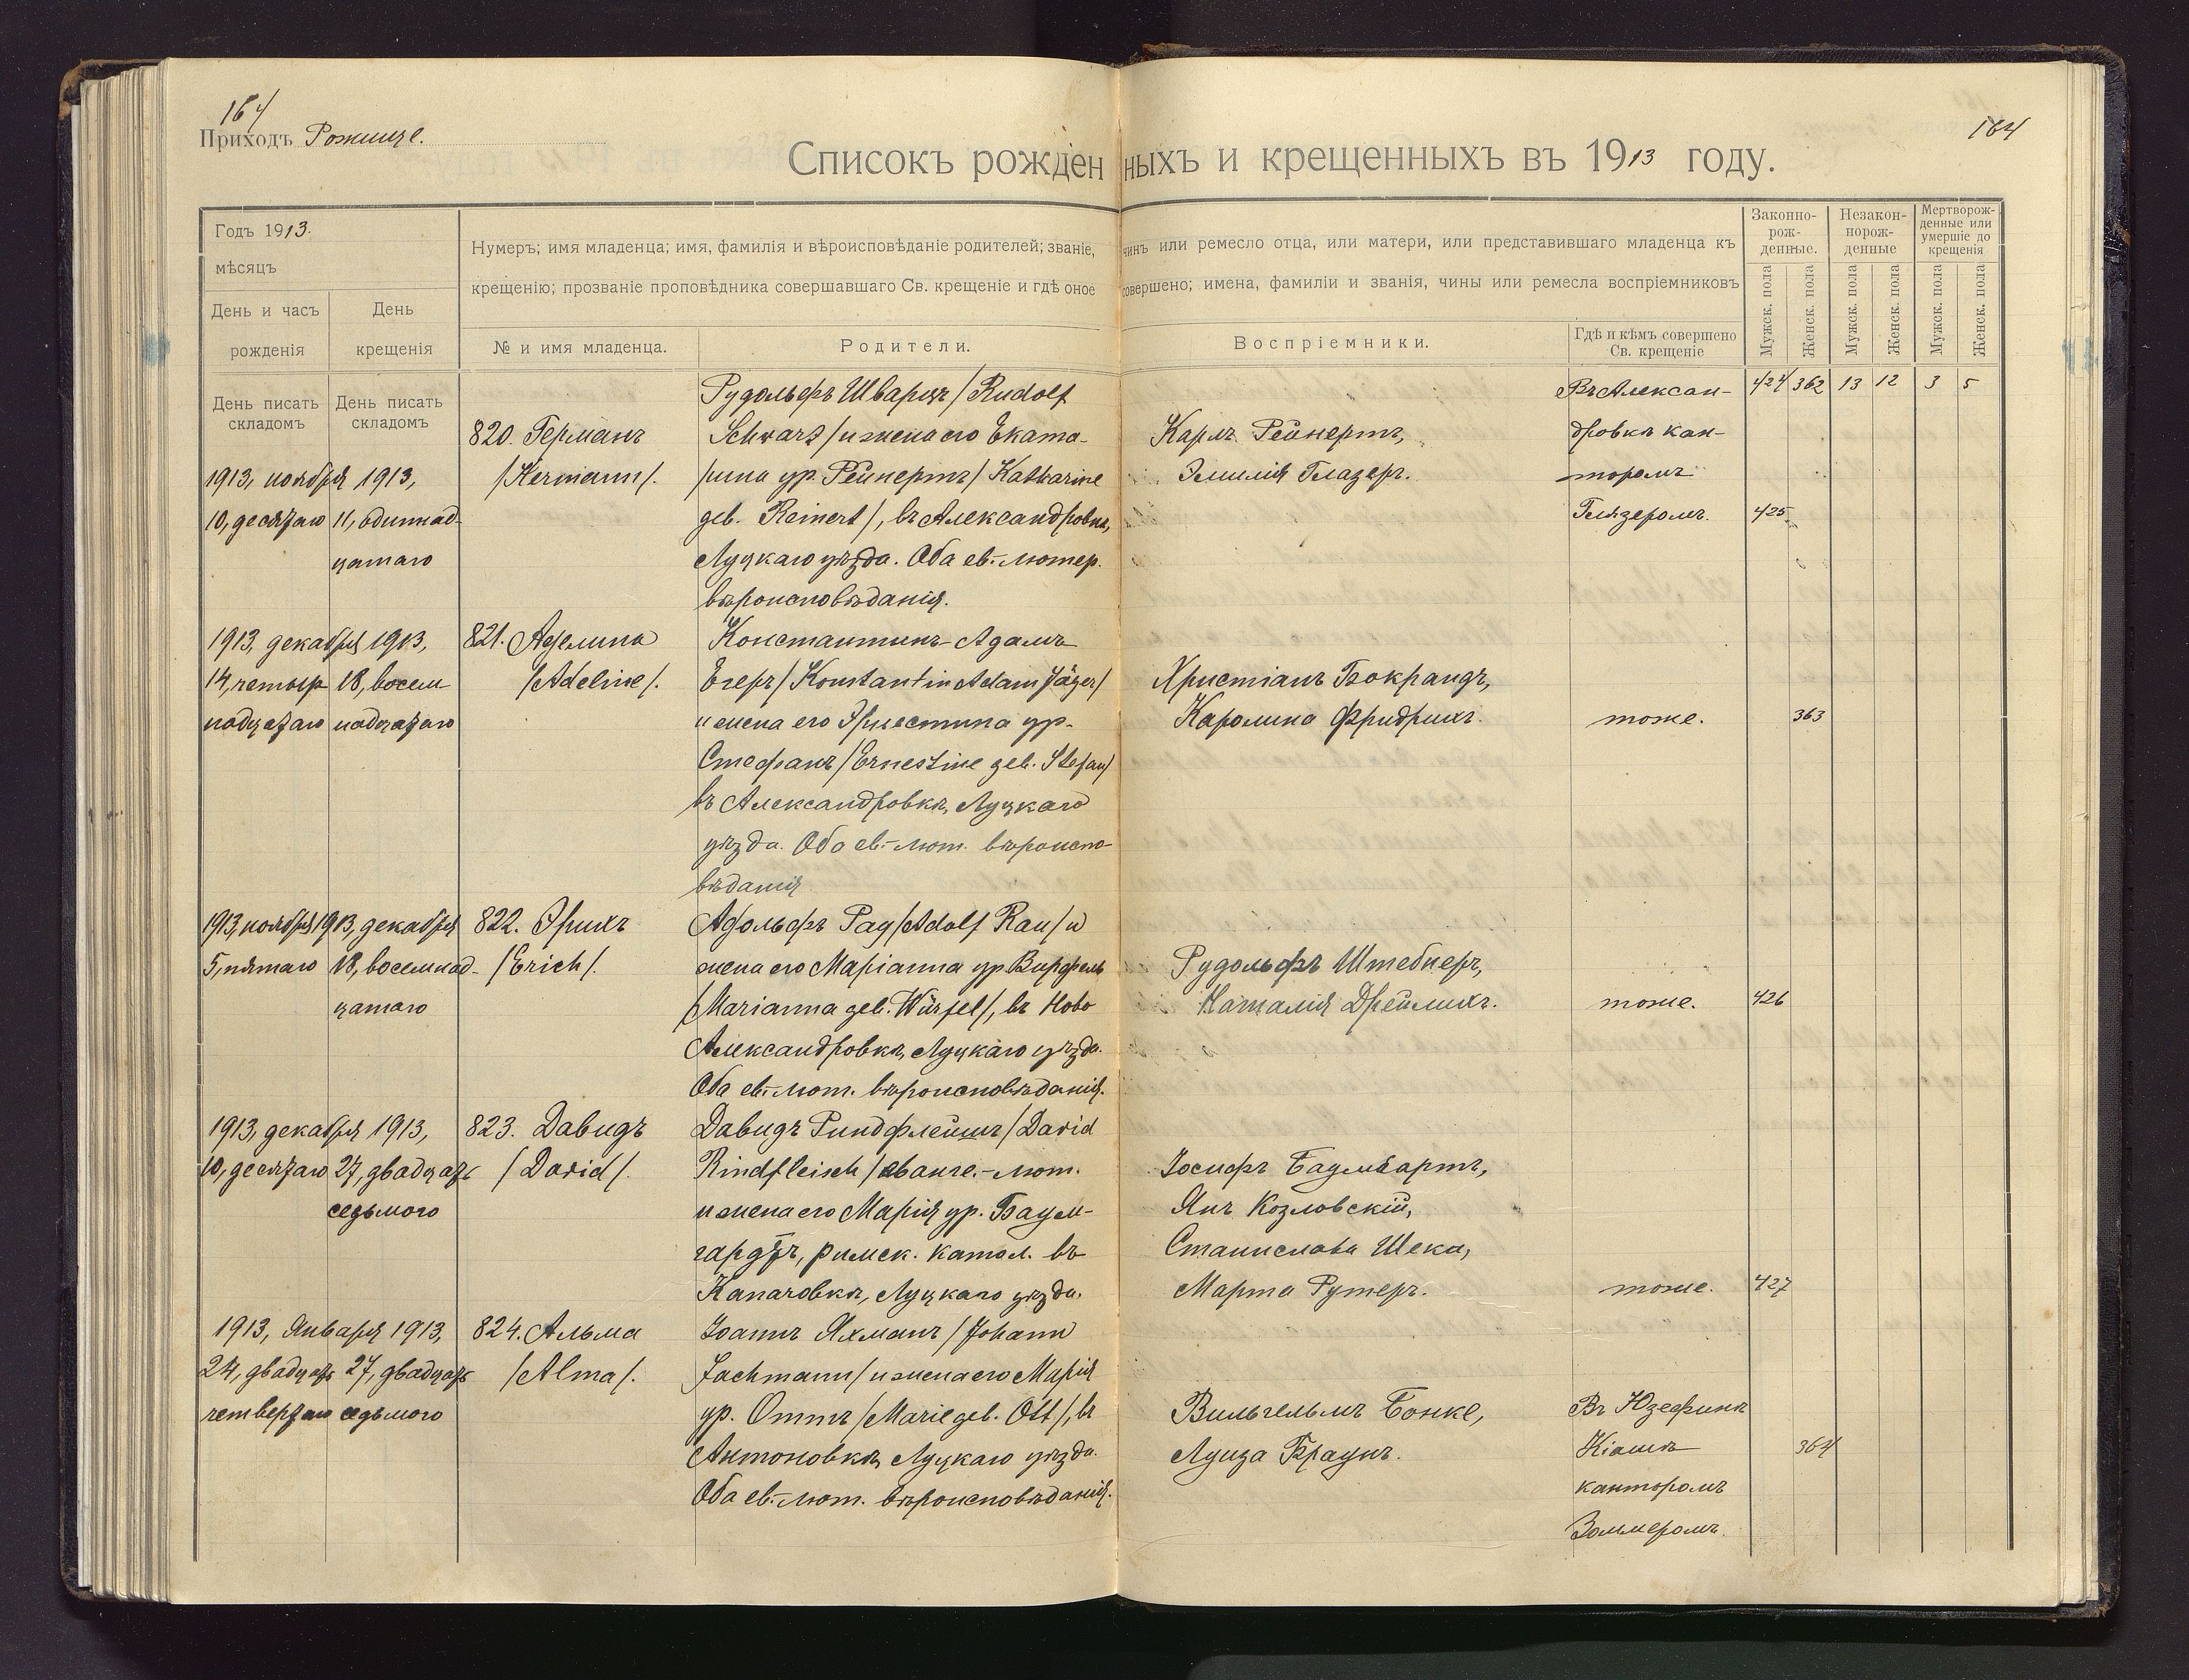 164
164
Приходъ Рожище.
Списокъ рожденныхъ и крещенныхъ въ 1913 году.
Годъ 1913.
мѣсяцъ
День и часъ рожденія
День крещенія
Нумеръ; имя младенца; имя, фамилія и вѣроисповѣданіе родителей; званіе, чинъ или ремесло отца, или матери, или представившаго младенца къ
крещенію; прозваніе проповѣдника совершавшаго Св. крещеніе и гдѣ оное совершено; имена, фамиліи и званія, чины или ремесла воспріемниковъ
№ и имя младенца.
Родители.
Воспріемники.
Гдѣ и кѣмъ совершено
Св. крещеніе
Законно-
рож-
денные.
Незакон-
норож-
денные
Мертворож-
денные или
умершіе до
крещенія
Мужск. пола
Женск. пола
Мужск. пола
Женск. пола
Мужск. пола
Женск. пола
День писать
складомъ
День писать
складомъ
424 362 13 12 3 5
1913, ноября 1913,
10, десятаго 11, одиннад-
цатаго
820. Германъ
/Hermann/.
Рудольфъ Шварцъ /Rudolf
Schwarz/ и жена его Ката-
рина ур. Рейнертъ /Katharine
геб. Reinert/, въ Александровкѣ,
Луцкаго уѣзда. Оба ев.-лютер.
вѣроисповѣданія.
Карлъ Рейнертъ,
Эмилія Глазеръ.
Въ Алексан-
дровкѣ кан-
торомъ
Глязеромъ.
425
1913, декабря 1913,
14, четыр 18, восем
надцатаго надцатаго
821. Аделина
/Adeline/.
Константинъ-Адамъ
Егеръ /Konstantin Adam Jäger/
и жена его Эрнестина ур.
Стефанъ /Ernestine геб. Stefan/
въ Александровкѣ, Луцкаго
уѣзда. Оба ев.-лют. вѣроиспо-
вѣданія
Христіанъ Бокрандъ,
Каролина Фридрихъ.
тоже.
363
1913, ноября 1913, декабря
5, пятаго 18, восемнад-
цатаго
822. Эрихъ
/Erich/.
Адольфъ Рау /Adolf Rau/ и
жена его Маріанна ур Вирфель
/Marianna геб. Würfel/, въ Ново
Александровкѣ, Луцкаго уѣзда.
Оба ев.-лют. вѣроисповѣданія.
Рудольфъ Штебнеръ,
Наталія Дрейлихъ.
тоже.
426
1913, декабря 1913,
10, десятаго 27, двадцать
седьмого
823. Давидъ
/David/.
Давидъ Риндфлейшъ /David
Rindfleisch/ еванге.-лют.
и жена его Марія ур. Баум-
римск. катол. въ
Капачовкѣ, Луцкаго уѣзда.
Іосифъ Баумгартъ,
Янъ Козловскій,
Станислава Шека,
Марта Рутеръ.
тоже.
427
1913, Января 1913,
24, двадцать 27, двадцать
четвертаго седьмого
824. Альма
/Alma/.
Іоаннъ Яхманъ /Johann
Jachmann/ и жена его Марія
ур. Оттъ /Marie геб. Ott/, въ
Антоновкѣ, Луцкаго уѣзда.
Оба ев.-лют. вѣроисповѣданія.
Вильгельмъ Бонке,
Луиза Браунъ.
Въ Юзефинѣ
канторомъ
Зоммеромъ.
364